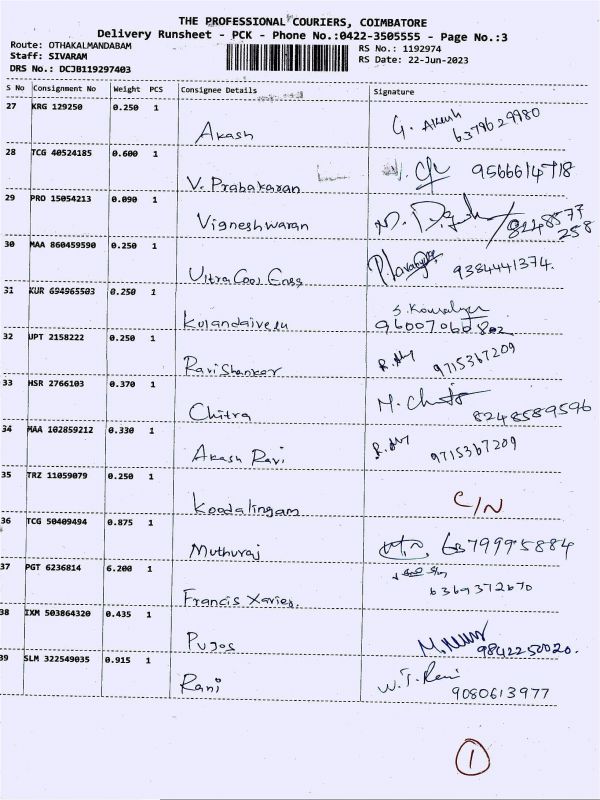 THE PROFESSIONAL COURIERS, COIMBATORE
Delivery Runsheet - PCK - Phone No.:0422-3505555 - Page No.:3
Route: OTHAKALMANDABAM
Staff: SIVARAM
DRS No.: DCJB119297403
RS No.: 1192974
RS Date: 22-Jun-2023
S No Consignment No Weight PCS Consignee Details Signature
27 KRG 129250 0.250 1
Akash G. Akash 6379629980
28 TCG 40524185 0.600 1
V. Prabakaran 9566614718
29 PRO 15054213 0.090 1
Vigneshwaran 8248577
258
30 MAA 860459590 0.250 1
Ultra Cool Engs 9384441374.
31 KUR 694965503 0.250 1
S. Kousalya
Kulandaivelu 9600706602
32 UPT 2158222 0.250 1
Ravishanker 9715367209
33 HSR 2766103 0.370 1
Chitra M. Chitra 8248589596
34 MAA 102859212 0.330 1
Akash Ravi 9715367209
35 TRZ 11059079 0.250 1
Koodalingam C/N
36 TCG 50409494 0.875 1
Muthuraj 6379995884
37 PGT 6236814 6.200 1
Francis Xavier. 6369372670
38 IXM 503864320 0.435 1
Pugos 9842250020.
39 SLM 322549035 0.915 1
Rani W.J. Rani 9080613977
1